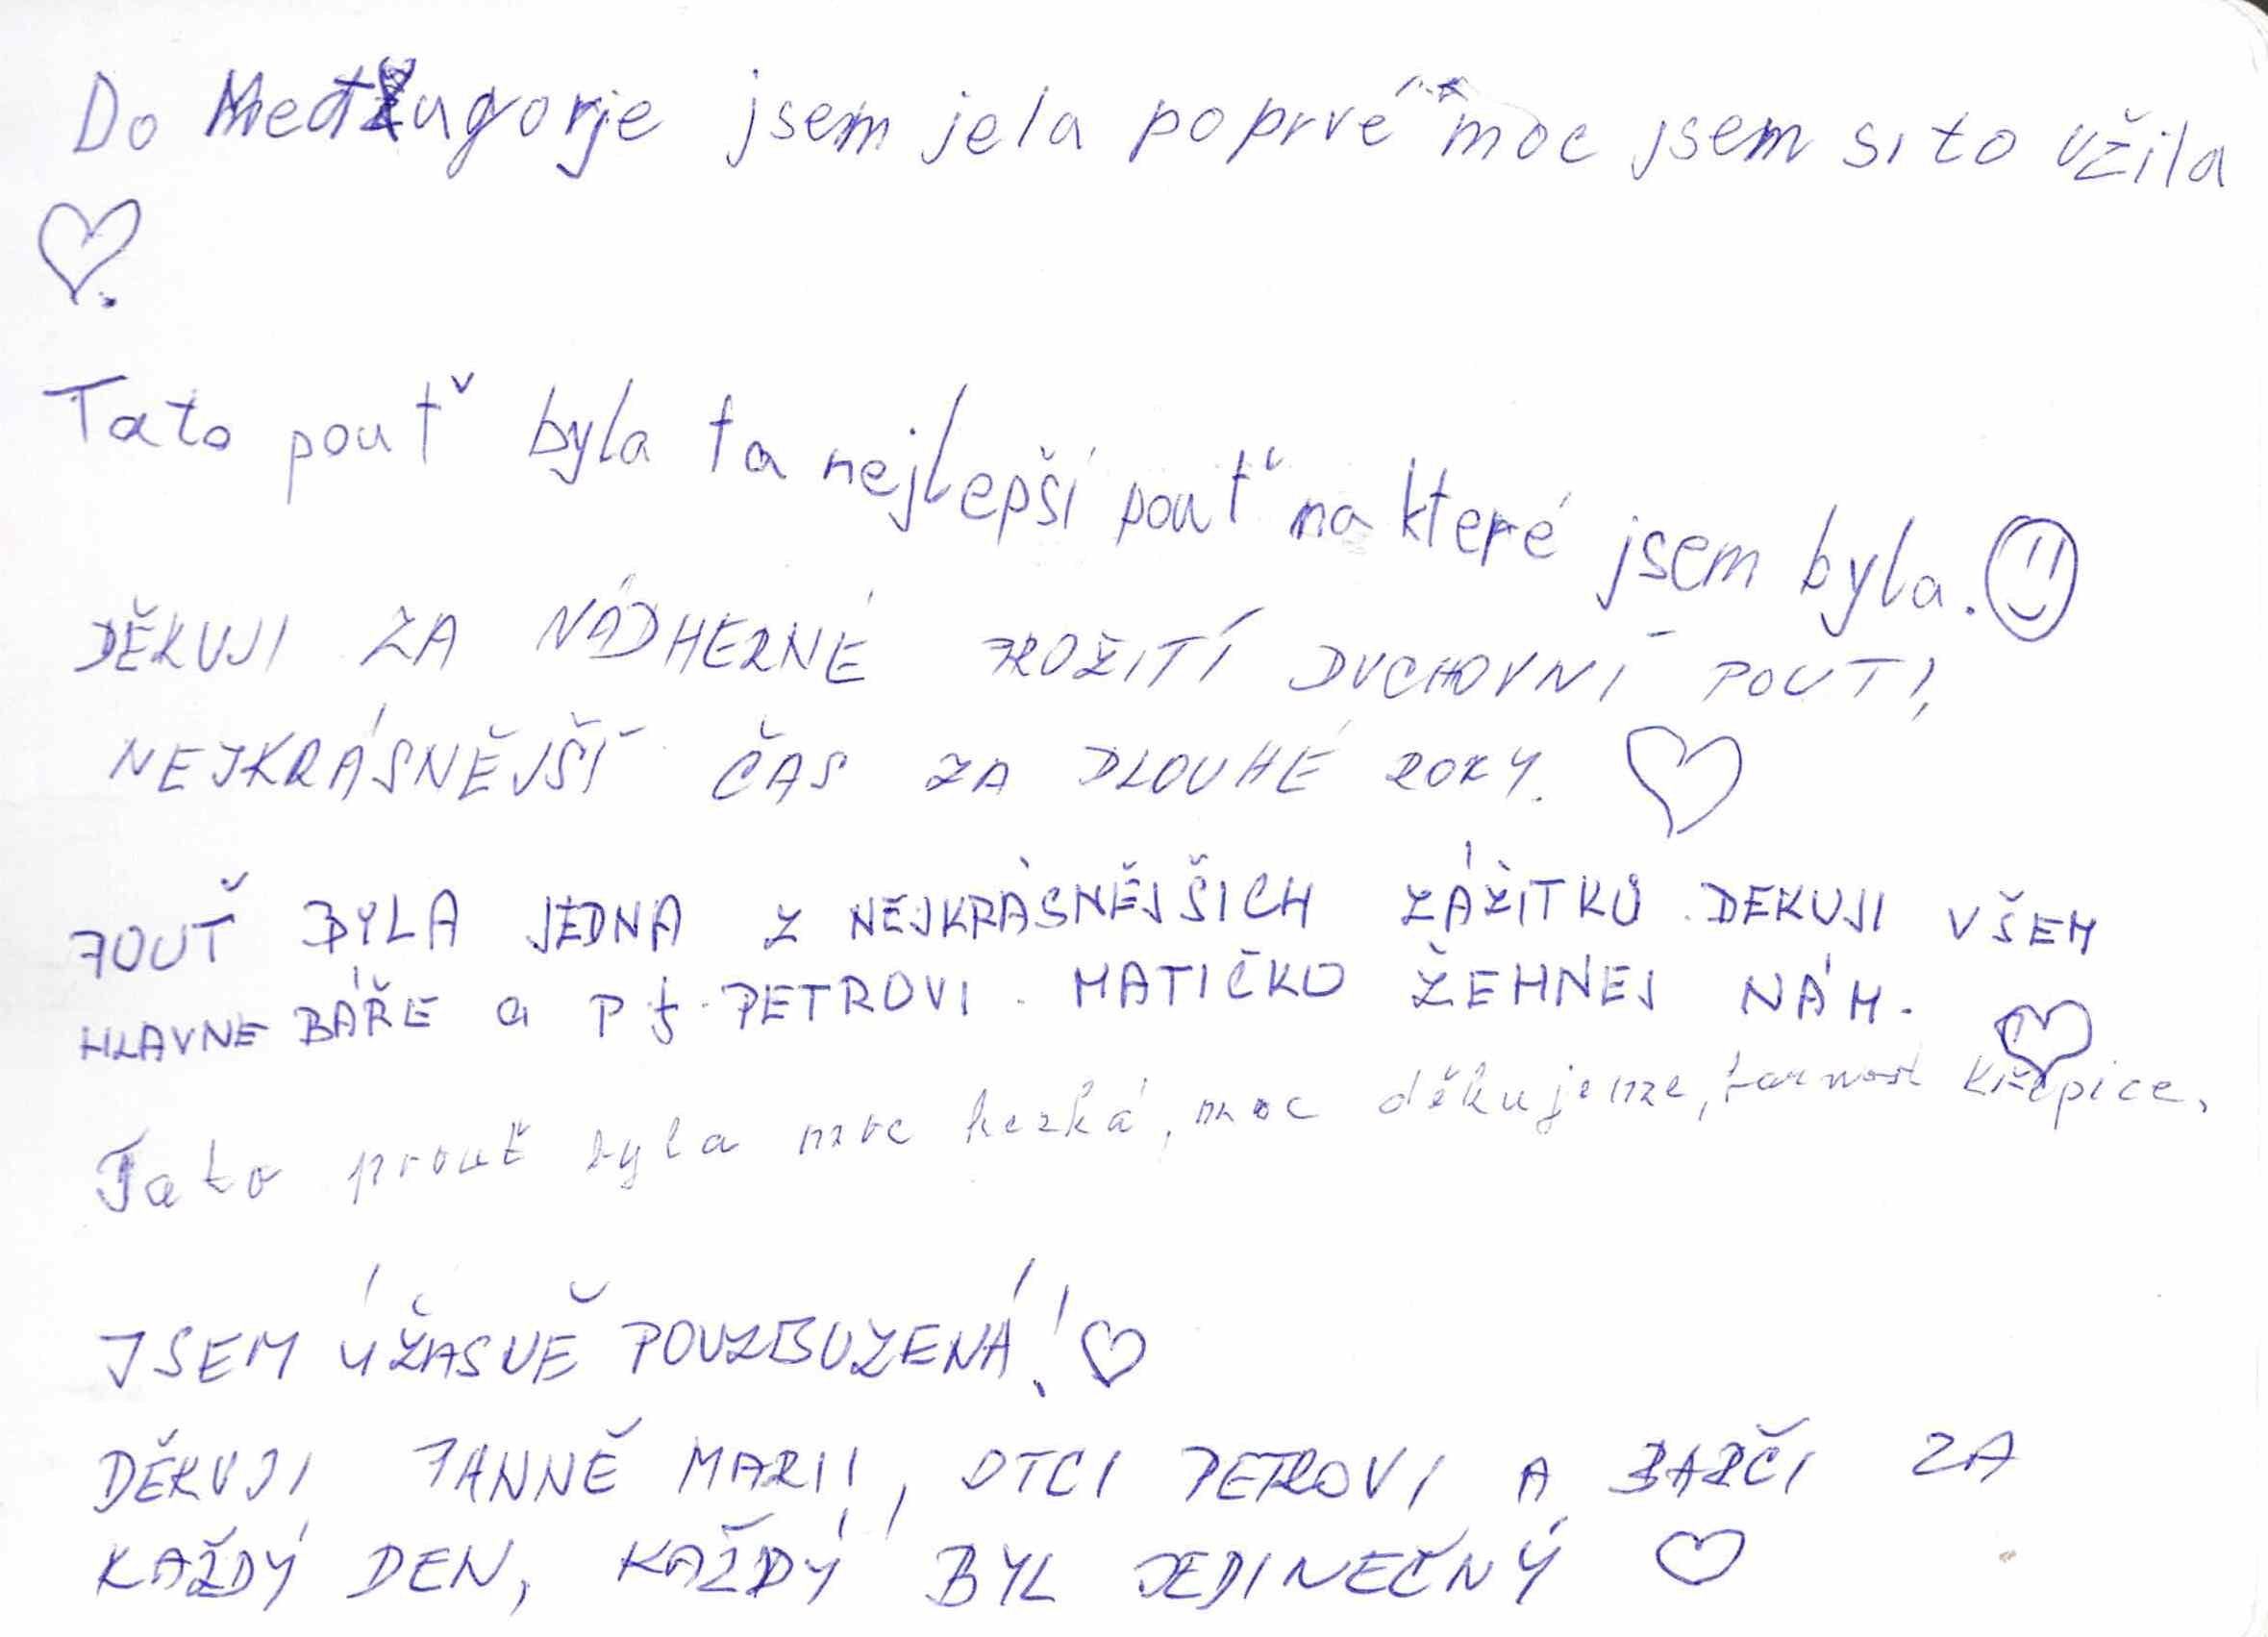 Do Medžugorje jsem jela poprvé moc jsem si to užila
♡.
Tato pouť byla ta nejlepší pouť na které jsem byla. ☺
DĚKUJI ZA NÁDHERNÉ PROŽITÍ DUCHOVNÍ POUTI,
NEJKRÁSNĚJŠÍ ČAS ZA DLOUHÉ ROKY. ♡
POUŤ BYLA JEDNA Z NEJKRÁSNĚJŠICH ZÁŽITKŮ. DEKUJI VŠEM
HLAVNE BÁŘE a P PETROVI. MATIČKO ŽEHNEJ NÁM. ♡
Tato pouť byla moc hezká, moc děkujeme, farnost Křepice.
JSEM ÚŽASNĚ POVZBUZENÁ! ♡
DĚKUJI PANNĚ MARII, OTCI PETROVI A BARČI ZA
KAŽDÝ DEN, KAŽDÝ BYL JEDINEČNÝ ♡